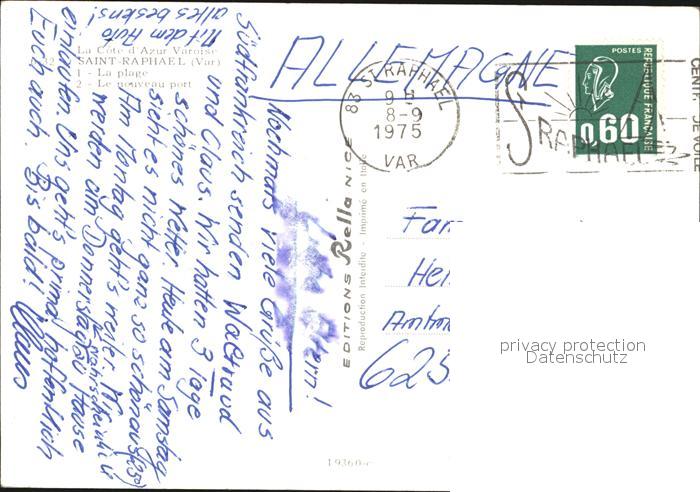 La Côte d'Azur Varoise
SAINT-RAPHAEL (Var)
1 - La plage
2 - Le nouveau port
ALLEMAGNE
83 ST RAPHAEL
9-
8-9
1975
VAR
POSTES
REPUBLIQUE FRANÇAISE
0,60
ST RAPHAEL
EDITIONS Rella NICE
Reproduction Interdite - Imprimé en Italie
Fam
Hei
625
privacy protection
Datenschutz
Liebe Eltern!
Nochmals viele Grüße aus
Südfrankreich senden Waltraud
und Claus. Wir hatten 3 Tage
schönes Wetter. Heute am Samstag
sieht es nicht ganz so schön aus
Am Montag geht's weiter. Wir
werden am Donnerstag zu Hause
wahrscheinlich
einlaufen. Uns geht's prima, hoffentlich
Euch auch. Bis bald! Claus
Mit dem Auto
alles bestens!